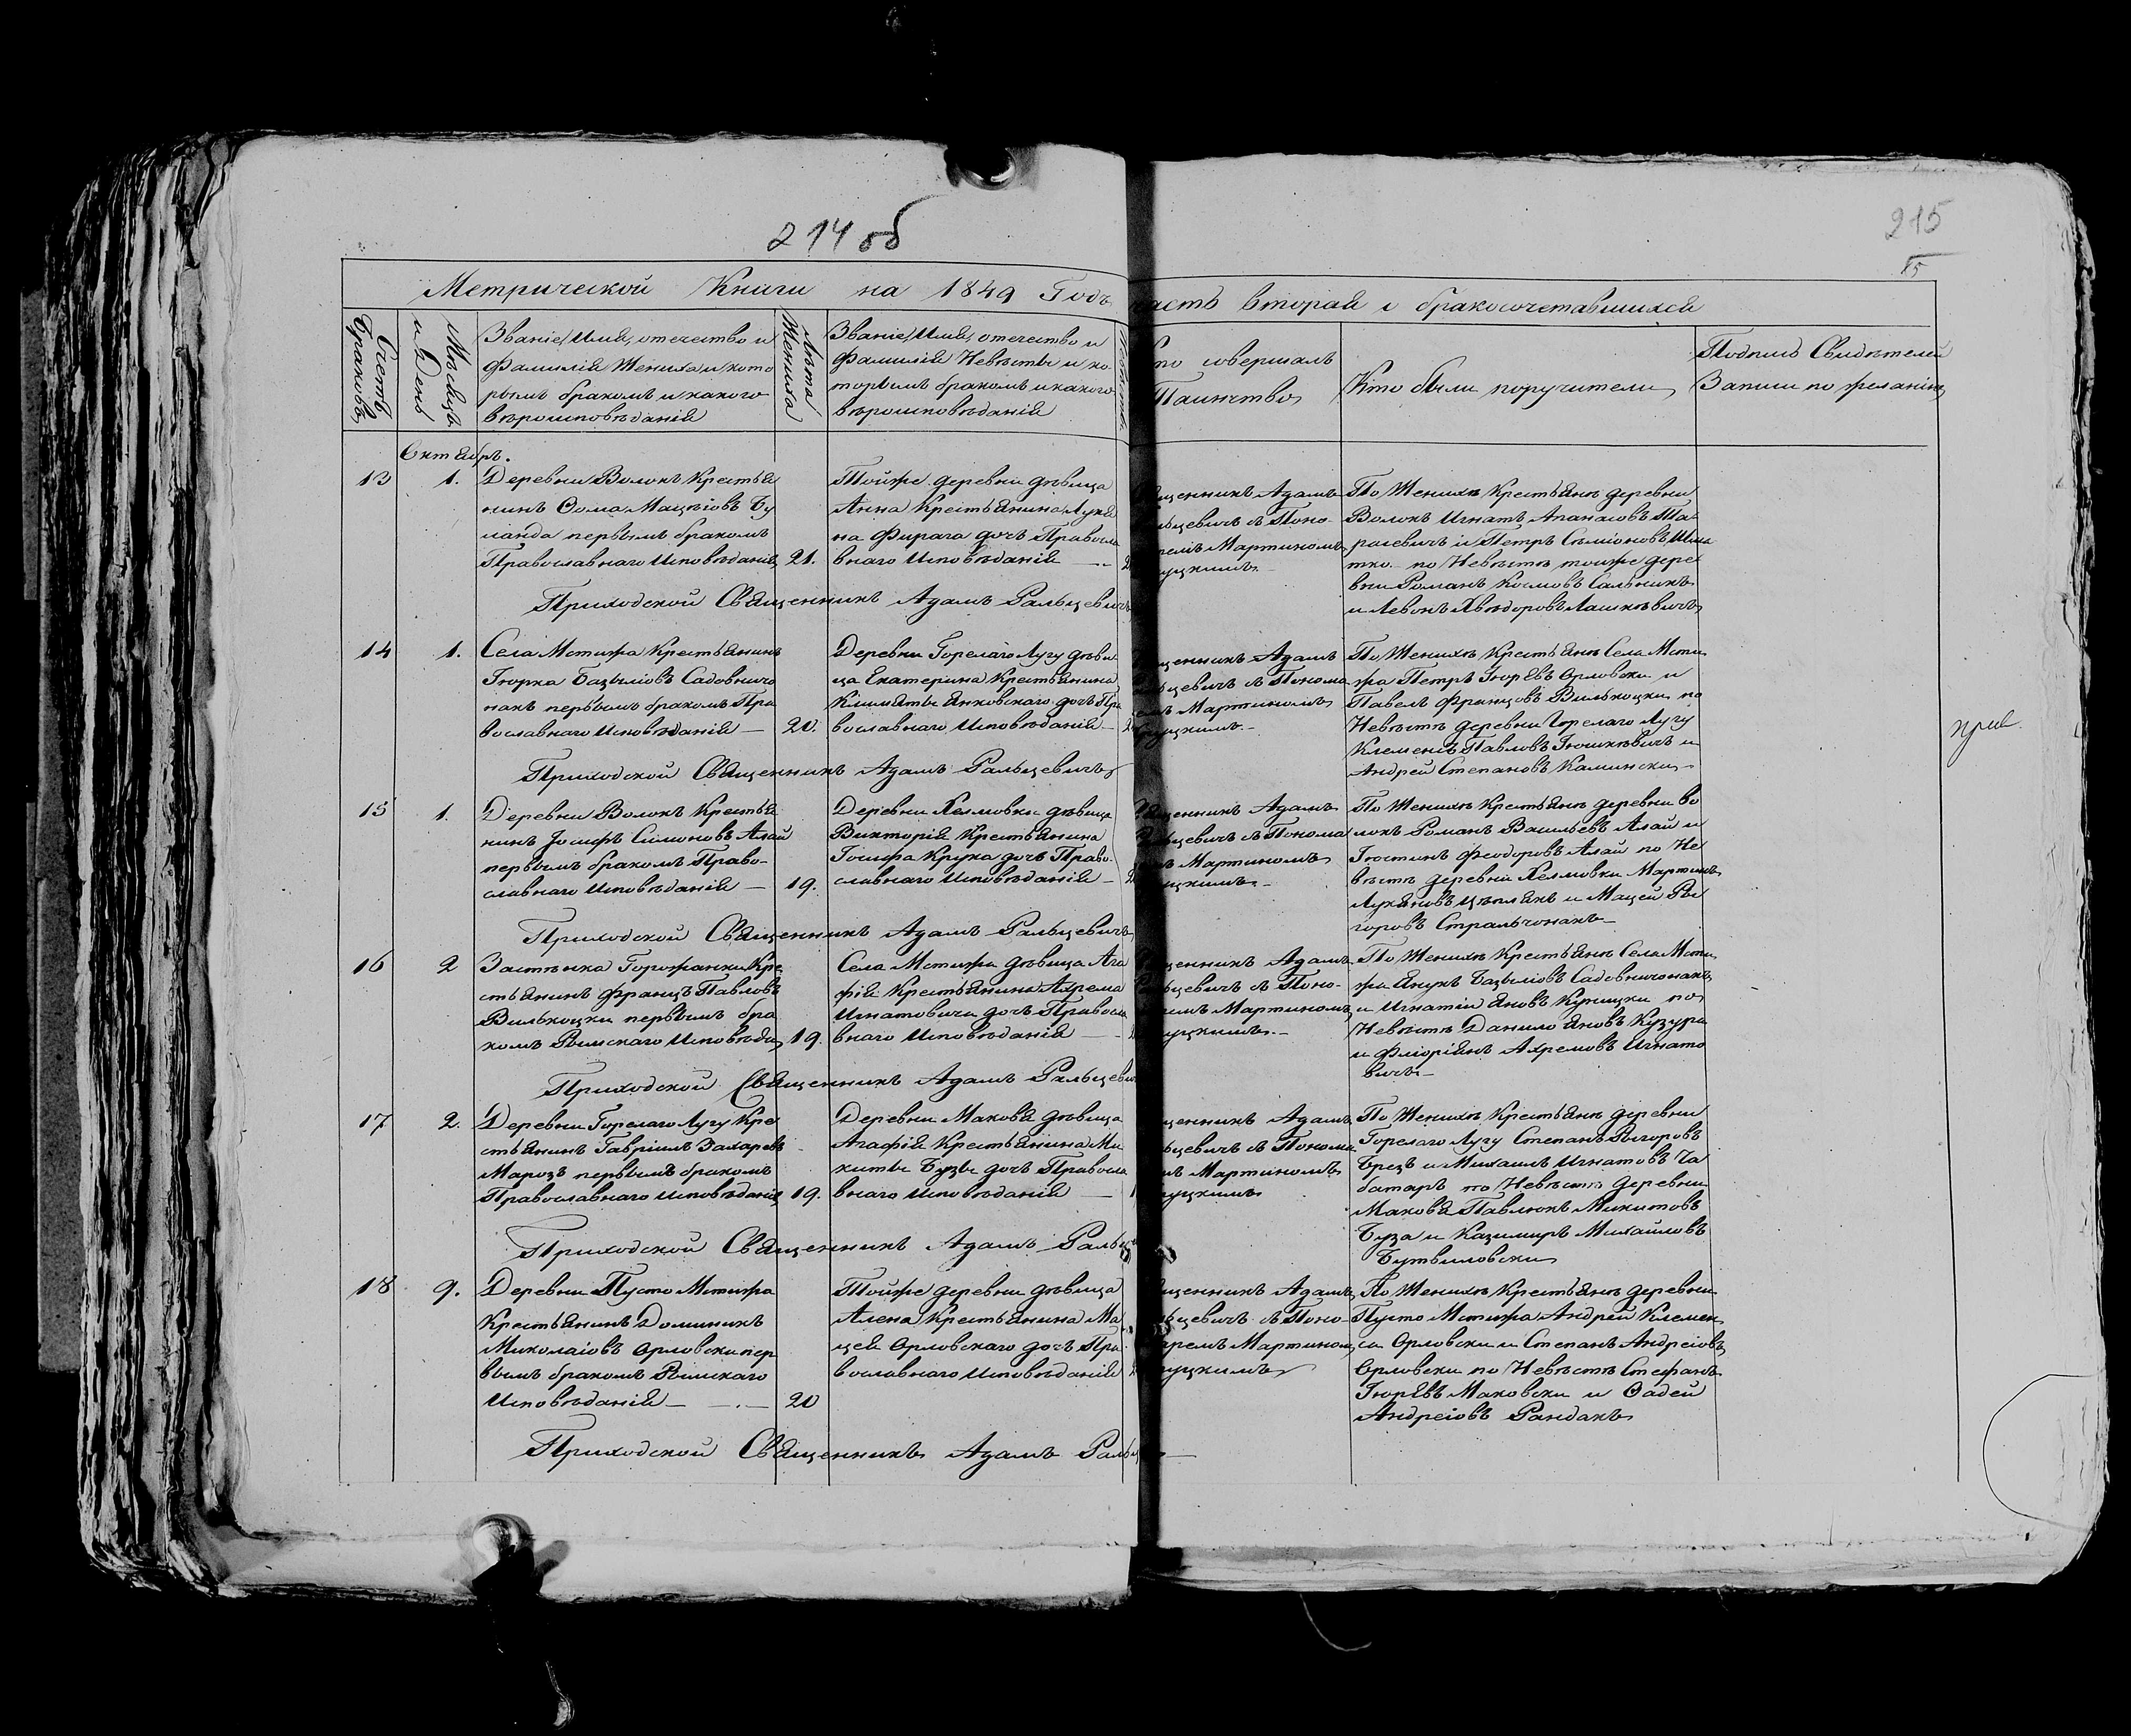 214 об
215
15
Метрической Книги на 1849 Годъ
часть вторая о бракосочетавшихся
Счетъ Браковъ
Мѣсяцъ и День
Званіе, Имя, отечество и
Фамилія Жениха и кото
рымъ бракомъ и какого
вѣроисповѣданія
Лѣта Жениха
Званіе, Имя, отечество и
Фамилія Невѣсты и ко
торымъ бракомъ и какого
вѣроисповѣданія
Кто совершалъ
Таинство
Кто были поручители
Подпись Свидетелей
Записи по желанію
Октябрь.
13 1. Деревни Волокъ Крестья
нинъ Ѳома Мацѣіовъ Бу
ланда первымъ бракомъ
Православнаго Исповѣданія 21.
Тойже деревни дѣвица
Анна Крестьянина Лукя
на Фирага дочь Правосла
внаго Исповѣданія
щенникъ Адамъ
льцевичъ съ Поно-
ремъ Мартиномъ
уцкимъ
По Женихѣ Крестьянѣ деревни
Волокъ Игнатъ Апанасовъ Та
расевичъ и Петръ Сѣміоновъ
тко. по Невѣстѣ тоиже дере
вни Романъ Космовъ Сальникъ
и Левонъ Хвѣдоровъ Лашкѣвичъ
Приходской Священникъ Адамъ Ральцевичъ
14 1. Села Мстижа Крестьянинъ
Іюрка Базыліовъ Садовничо
накъ первымъ бракомъ Пра
вославнаго Исповѣданія 20.
Деревни Горелаго Лугу дѣви
ца Екатерина Крестьянина
Климяты Янковскаго дочь Пра
вославнаго Исповѣданія
щенникъ Адамъ
ьцевичъ съ Понома
Мартиномъ
уцкимъ
По Женихѣ Крестьянѣ Села Мсти
жа Петръ Іюрьевъ Орловски и
Павелъ Францовъ Вилькоцки по
Невѣстѣ деревни Горелаго Лугу
Клеменсъ Павловъ Іюшкѣвичъ и
Андрей Степановъ Камински
Приходской Священникъ Адамъ Ральцевичъ
прав.
15 1. Деревни Волокъ Крестья
нинъ Іосифъ Симоновъ Алай
первымъ бракомъ Право-
славнаго Исповѣданія 19.
Деревни Хелмовки дѣвица
Викторія Крестьянина
Іосифа Крука дочь Право
славнаго Исповѣданія
щенникъ Адамъ
ьцевичъ съ Понома
Мартиномъ
уцкимъ
По Женихѣ Крестьянѣ деревни Во
локъ Романъ Васильевъ Алай и
Іюстинъ Феодоровъ Алай по Не
вѣстѣ деревни Хелмовки Мартинъ
Лукяновъ Цѣплякъ и Мацей Ры
горовъ Стральчонакъ
Приходской Священникъ Адамъ Ральцевичъ
16 2 Застѣнка Горожанки Кре
стьянинъ Францъ Павловъ
Вилькоцки первымъ бра
комъ Рымскаго Исповѣда 19.
Села Мстижа дѣвица Ага
фія Крестьянина Ахрема
Игнатовича дочь Правосла
внаго Исповѣданія
щенникъ Адамъ
ьцевичъ съ Поно-
Мартиномъ
уцкимъ
По Женихѣ Крестьянѣ Села Мсти
жа Янукъ Базыліовъ Садовничонакъ
и Игнатіи Яновъ Купицки по
Невѣстѣ Данило Яновъ Кузура
и Флоріянъ Ахремовъ Игнато
вичъ
Приходской Священникъ Адамъ Ральцеви
17 2. Деревни Горелаго Лугу Кре
стьянинъ Гавріилъ Захаревъ
Марозъ первымъ бракомъ
Православнаго Исповѣданія 19.
Деревни Маковя дѣвица
Агафія Крестьянина Ми
киты Бузы дочь Правосла
внаго Исповѣданія
щенникъ Адамъ
ьцевичъ съ Понома
Мартиномъ
уцкимъ
По Женихѣ Крестьянѣ деревни
Горелаго Лугу Степанъ Рыгоровъ
Брезъ и Михаилъ Игнатовъ Ча
батаръ по Невѣстѣ деревни
Маковя Павлюкъ Микитовъ
Буза и Казимиръ Михайловъ
Бутвиловски
Приходской Священникъ Адамъ Раль
18 9. Деревни Пусто Мстижа
Крестьянинъ Доминикъ
Миколаіовъ Орловски пер
вымъ бракомъ Рымскаго
Исповѣданія 20
Тойже деревни дѣвица
Алена Крестьянина Ма
цея Орловскаго дочь Пра
вославнаго Исповѣданія
щенникъ Адамъ
ьцевичъ съ Поно-
аремъ Мартиномъ
уцкимъ
По Женихѣ Крестьянѣ деревни
Пусто Мстижа Андрей Клемен
си Орловски и Степанъ Андреіовъ
Орловски по Невѣстѣ Стефанъ
Іюрьевъ Маковски и Фадей
Андреіовъ Рандакъ
Приходской Священникъ Адамъ Ральц